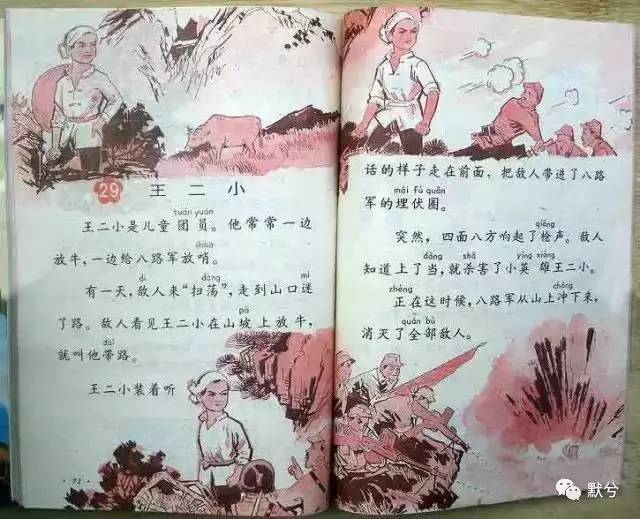 29 王二小
tuán yuán
王二小是儿童团员。他常常一边
shào
放牛,一边给八路军放哨。
dí dàng mí
有一天,敌人来“扫荡”,走到山口迷
pō
了路。敌人看见王二小在山坡上放牛,
dài
就叫他带路。
王二小装着听
· 72 ·
话的样子走在前面,把敌人带进了八路
mái fú quān
军的埋伏圈。
qiāng
突然,四面八方响起了枪声。敌人
dàng shā yīng xióng
知道上了当,就杀害了小英雄王二小。
zhèng chōng
正在这时候,八路军从山上冲下来,
quán bù
消灭了全部敌人。
默兮